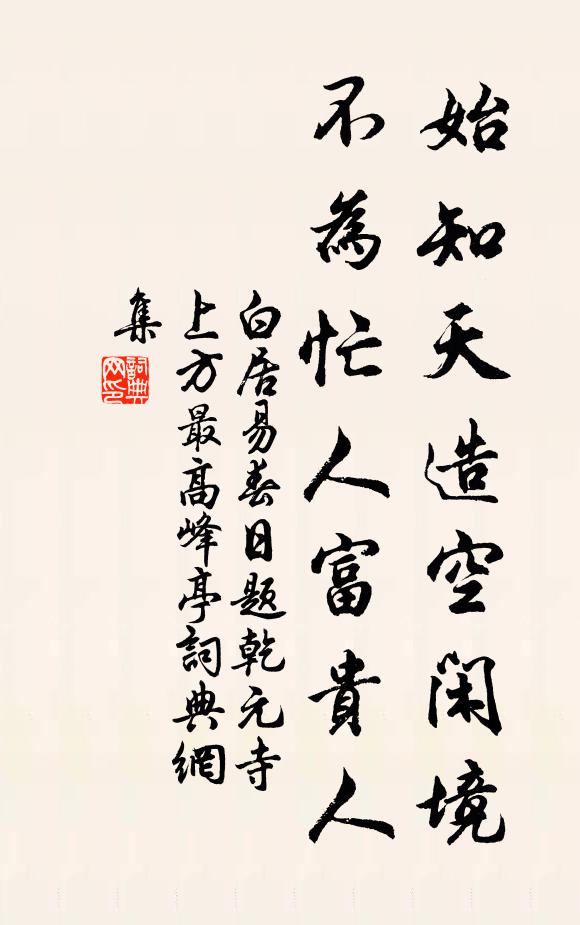 始知天造空閑境
不為忙人富貴人
白居易春日題乾元寺
上方最高峰亭詞典網
集
詞典
网印